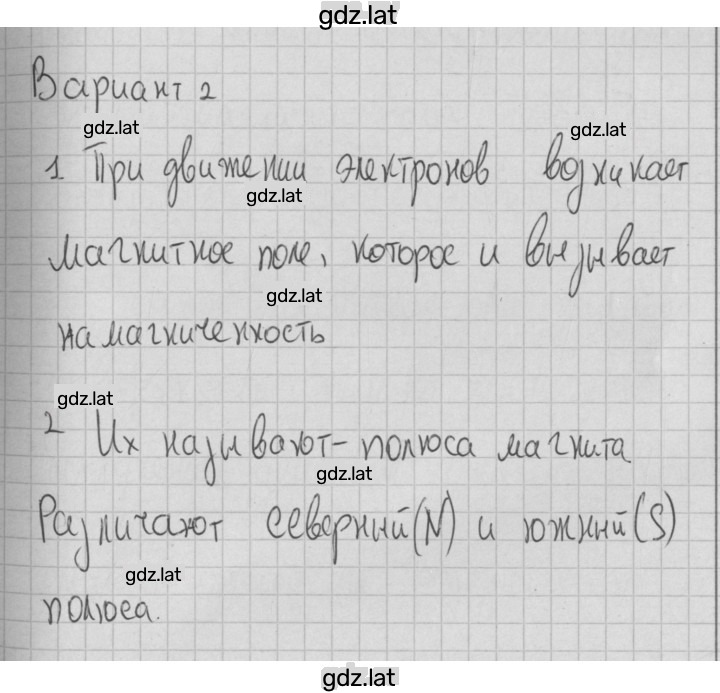 gdz.lat
Вариант 2
gdz.lat
gdz.lat
1. При движении электронов возникает
gdz.lat
магнитное поле, которое и вызывает
gdz.lat
намагниченность
gdz.lat
2 Их называют - полюса магнита
gdz.lat
Различают северный (N) и южный (S)
gdz.lat
полюса.
gdz.lat